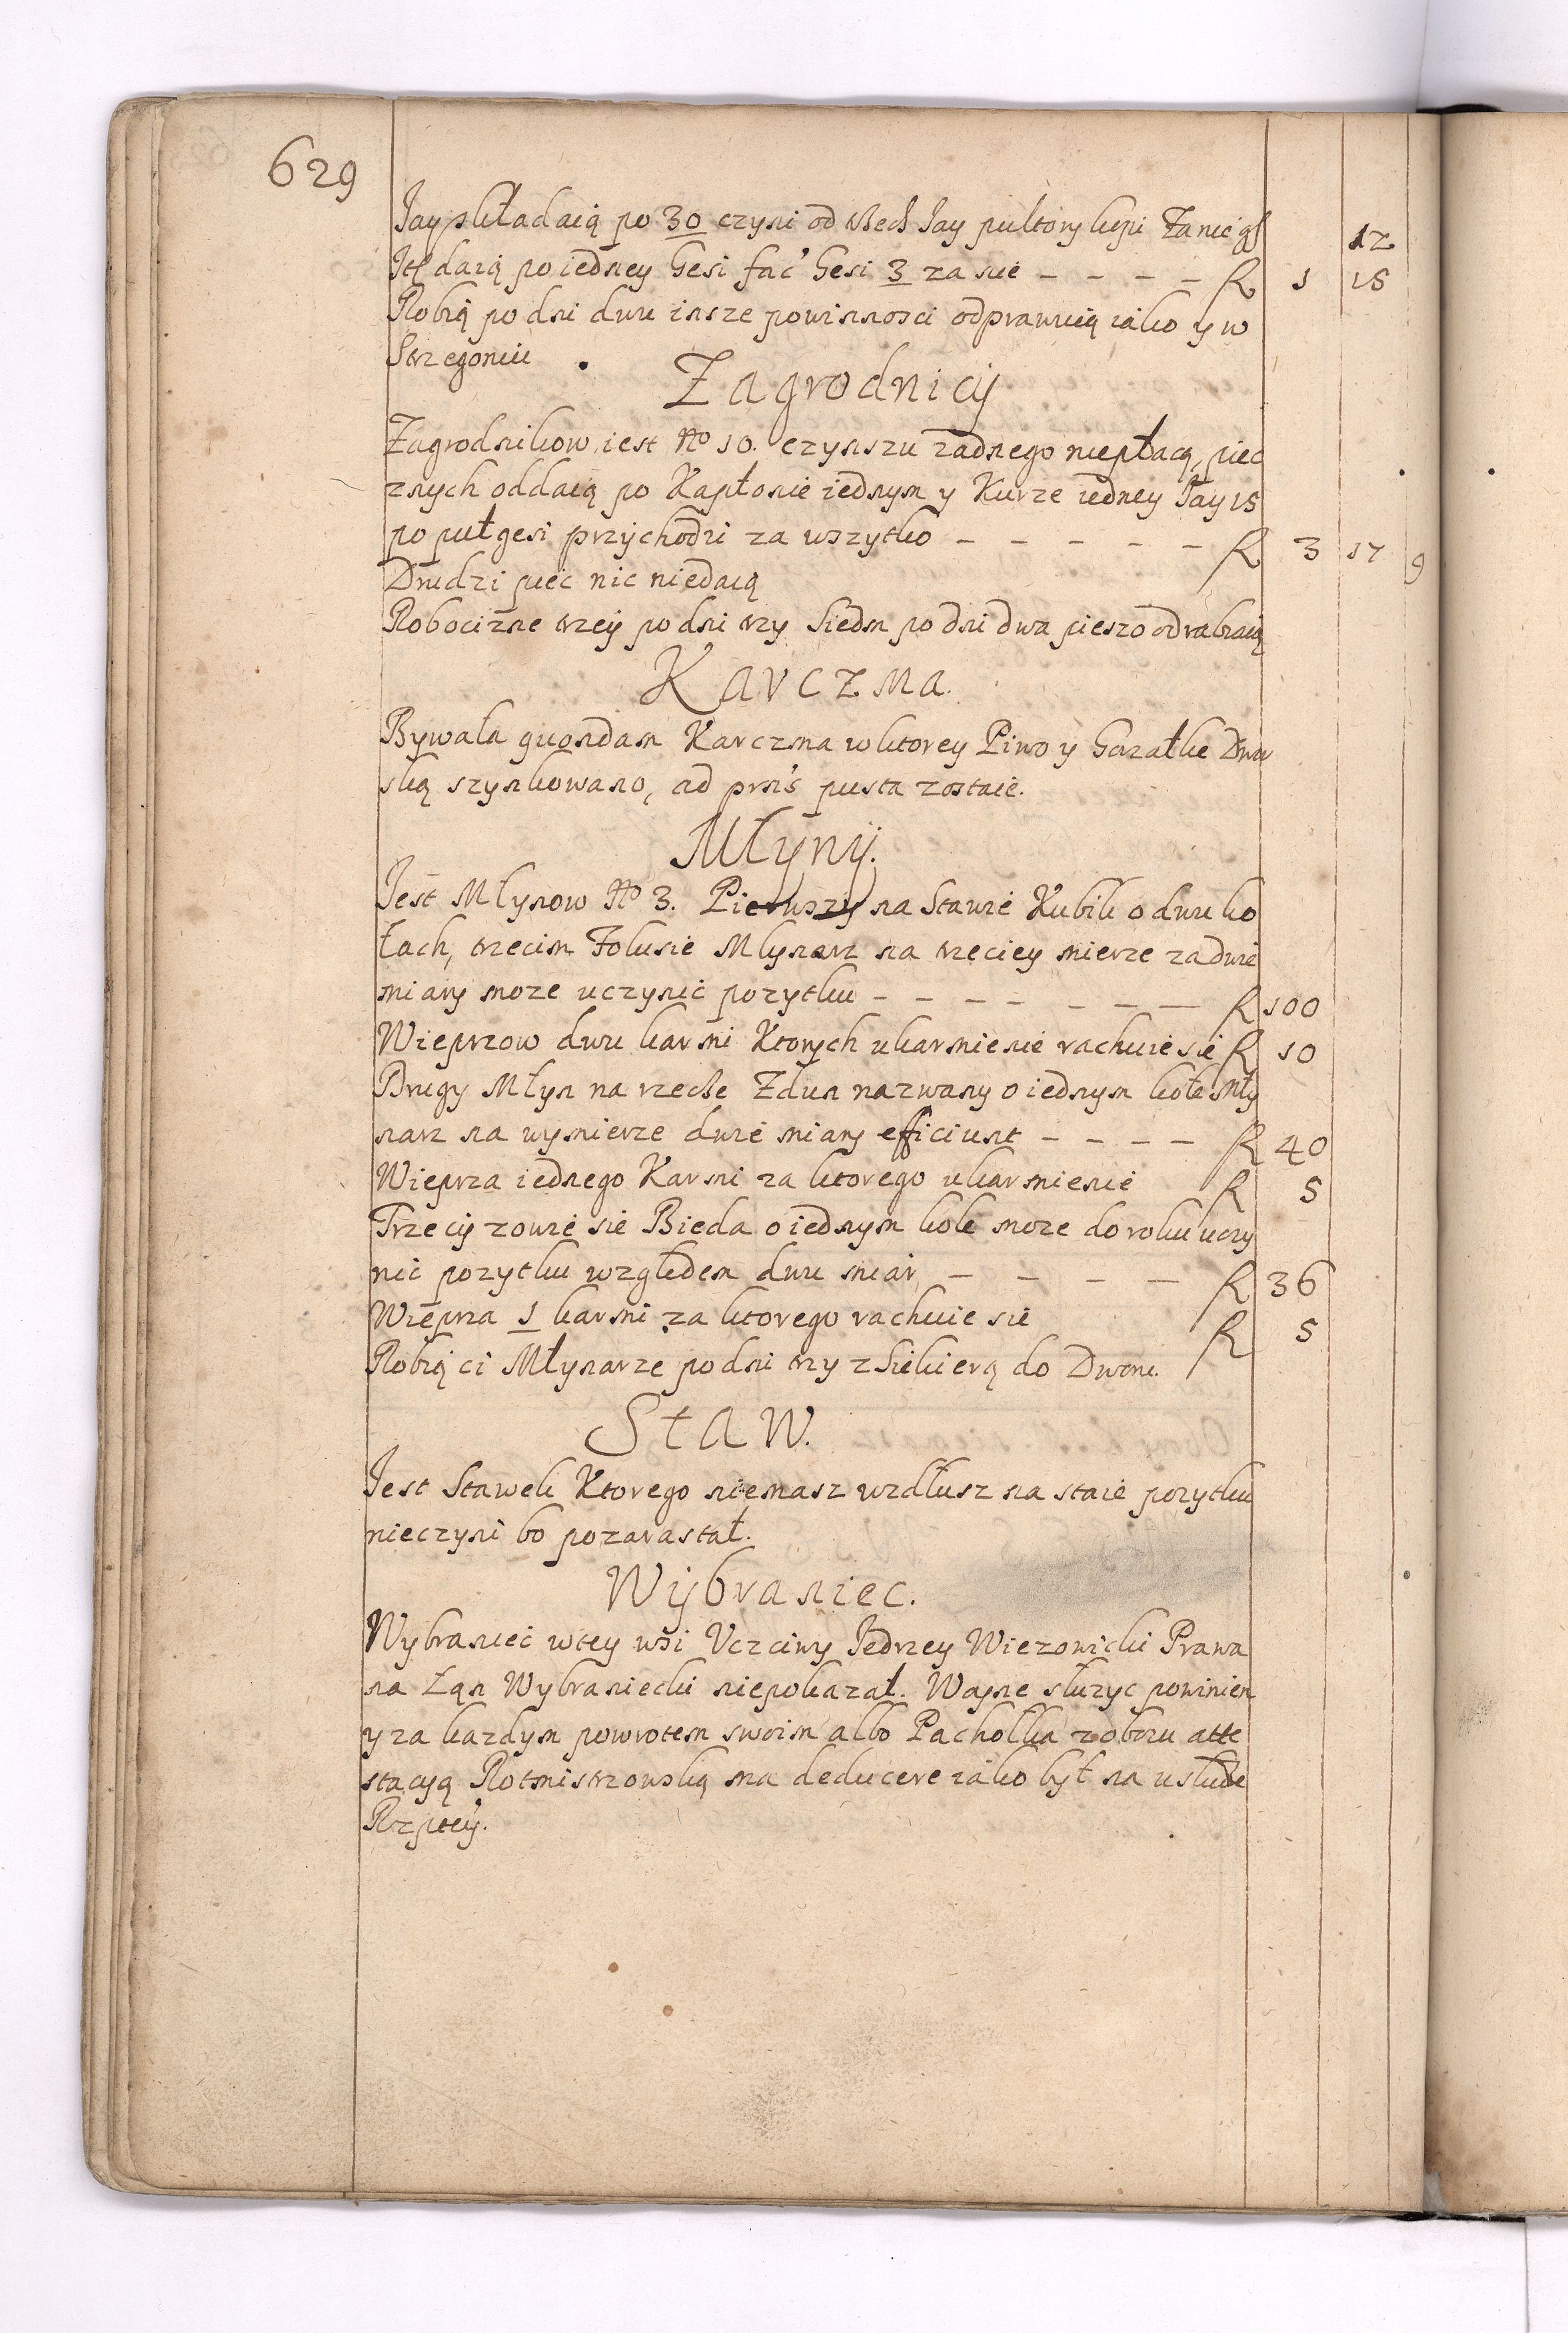 629
Jay składaią po 30 czyni od wsech Jay pułtory kupi Za nie gs 12
Itẽ daią po iedney Gęsi fac̃ Gęsi 3 za nie – – – – R 1 15
Robią po dni dwu insze powinności odprawuią iako y w
Strzegomiu
Zagrodnicÿ
Zagrodnikow iest No 10. czynszu zadnego niepłacą, piec
znych oddaią po Kapłonie iednym y Kurze iedney Jay 15
po puł gęsi przÿchodzi za wszytko – – – – – R 3 17 9
Drudzi pięc nic niedaią
Robociznę trzeÿ po dni trzy Siedm po dni dwa pieszo odrabiaią
Karczma.
Bywała quondam Karczma w ktorey Piwo y Gorzałkę Dwor
ską szynkowano, ad prns̃ pusta zostaie.
Młynÿ.
Jest Młynow No 3. Pierwszy na Stawie Kubik o dwu ko
łach, trzecim Folusie Młynarz na trzeciey mierze za dwie
miary moze uczynić pozytku – – – – – – – R 100
Wieprzow dwu karmi Ktorych ukarmienie rachuie się R 10
Drugy Młyn na rzecze Zdun nazwany o iednym kole Mły
narz na wymierze dwie miary efficiunt – – – – R 40
Wieprza iednego Karmi za ktorego ukarmienie R 5
Trzecÿ zowie się Bieda o iednym kole moze do roku uczy
nic pozytku względem dwu miar – – – – R 36
Wieprza 1 karmi za ktorego rachuie się R 5
Robią ci Młynarze po dni trzy z Siekierą do Dworu. R
Staw.
Jest Stawek Ktorego niemasz wzdłusz na staie pozytku
nieczyni bo pozarastał.
Wÿbraniec.
Wybraniec w tey wsi Uczciwy Jędrzey Wiezowicki Prawa
na Łan Wybraniecki niepokazał. Woynę słuzyc powinien
y za kazdym powrotem swoim albo Pachołka z obozu atte
stacyą Rotmistrzowską ma deducere iako był na usłudze
Rzptey.